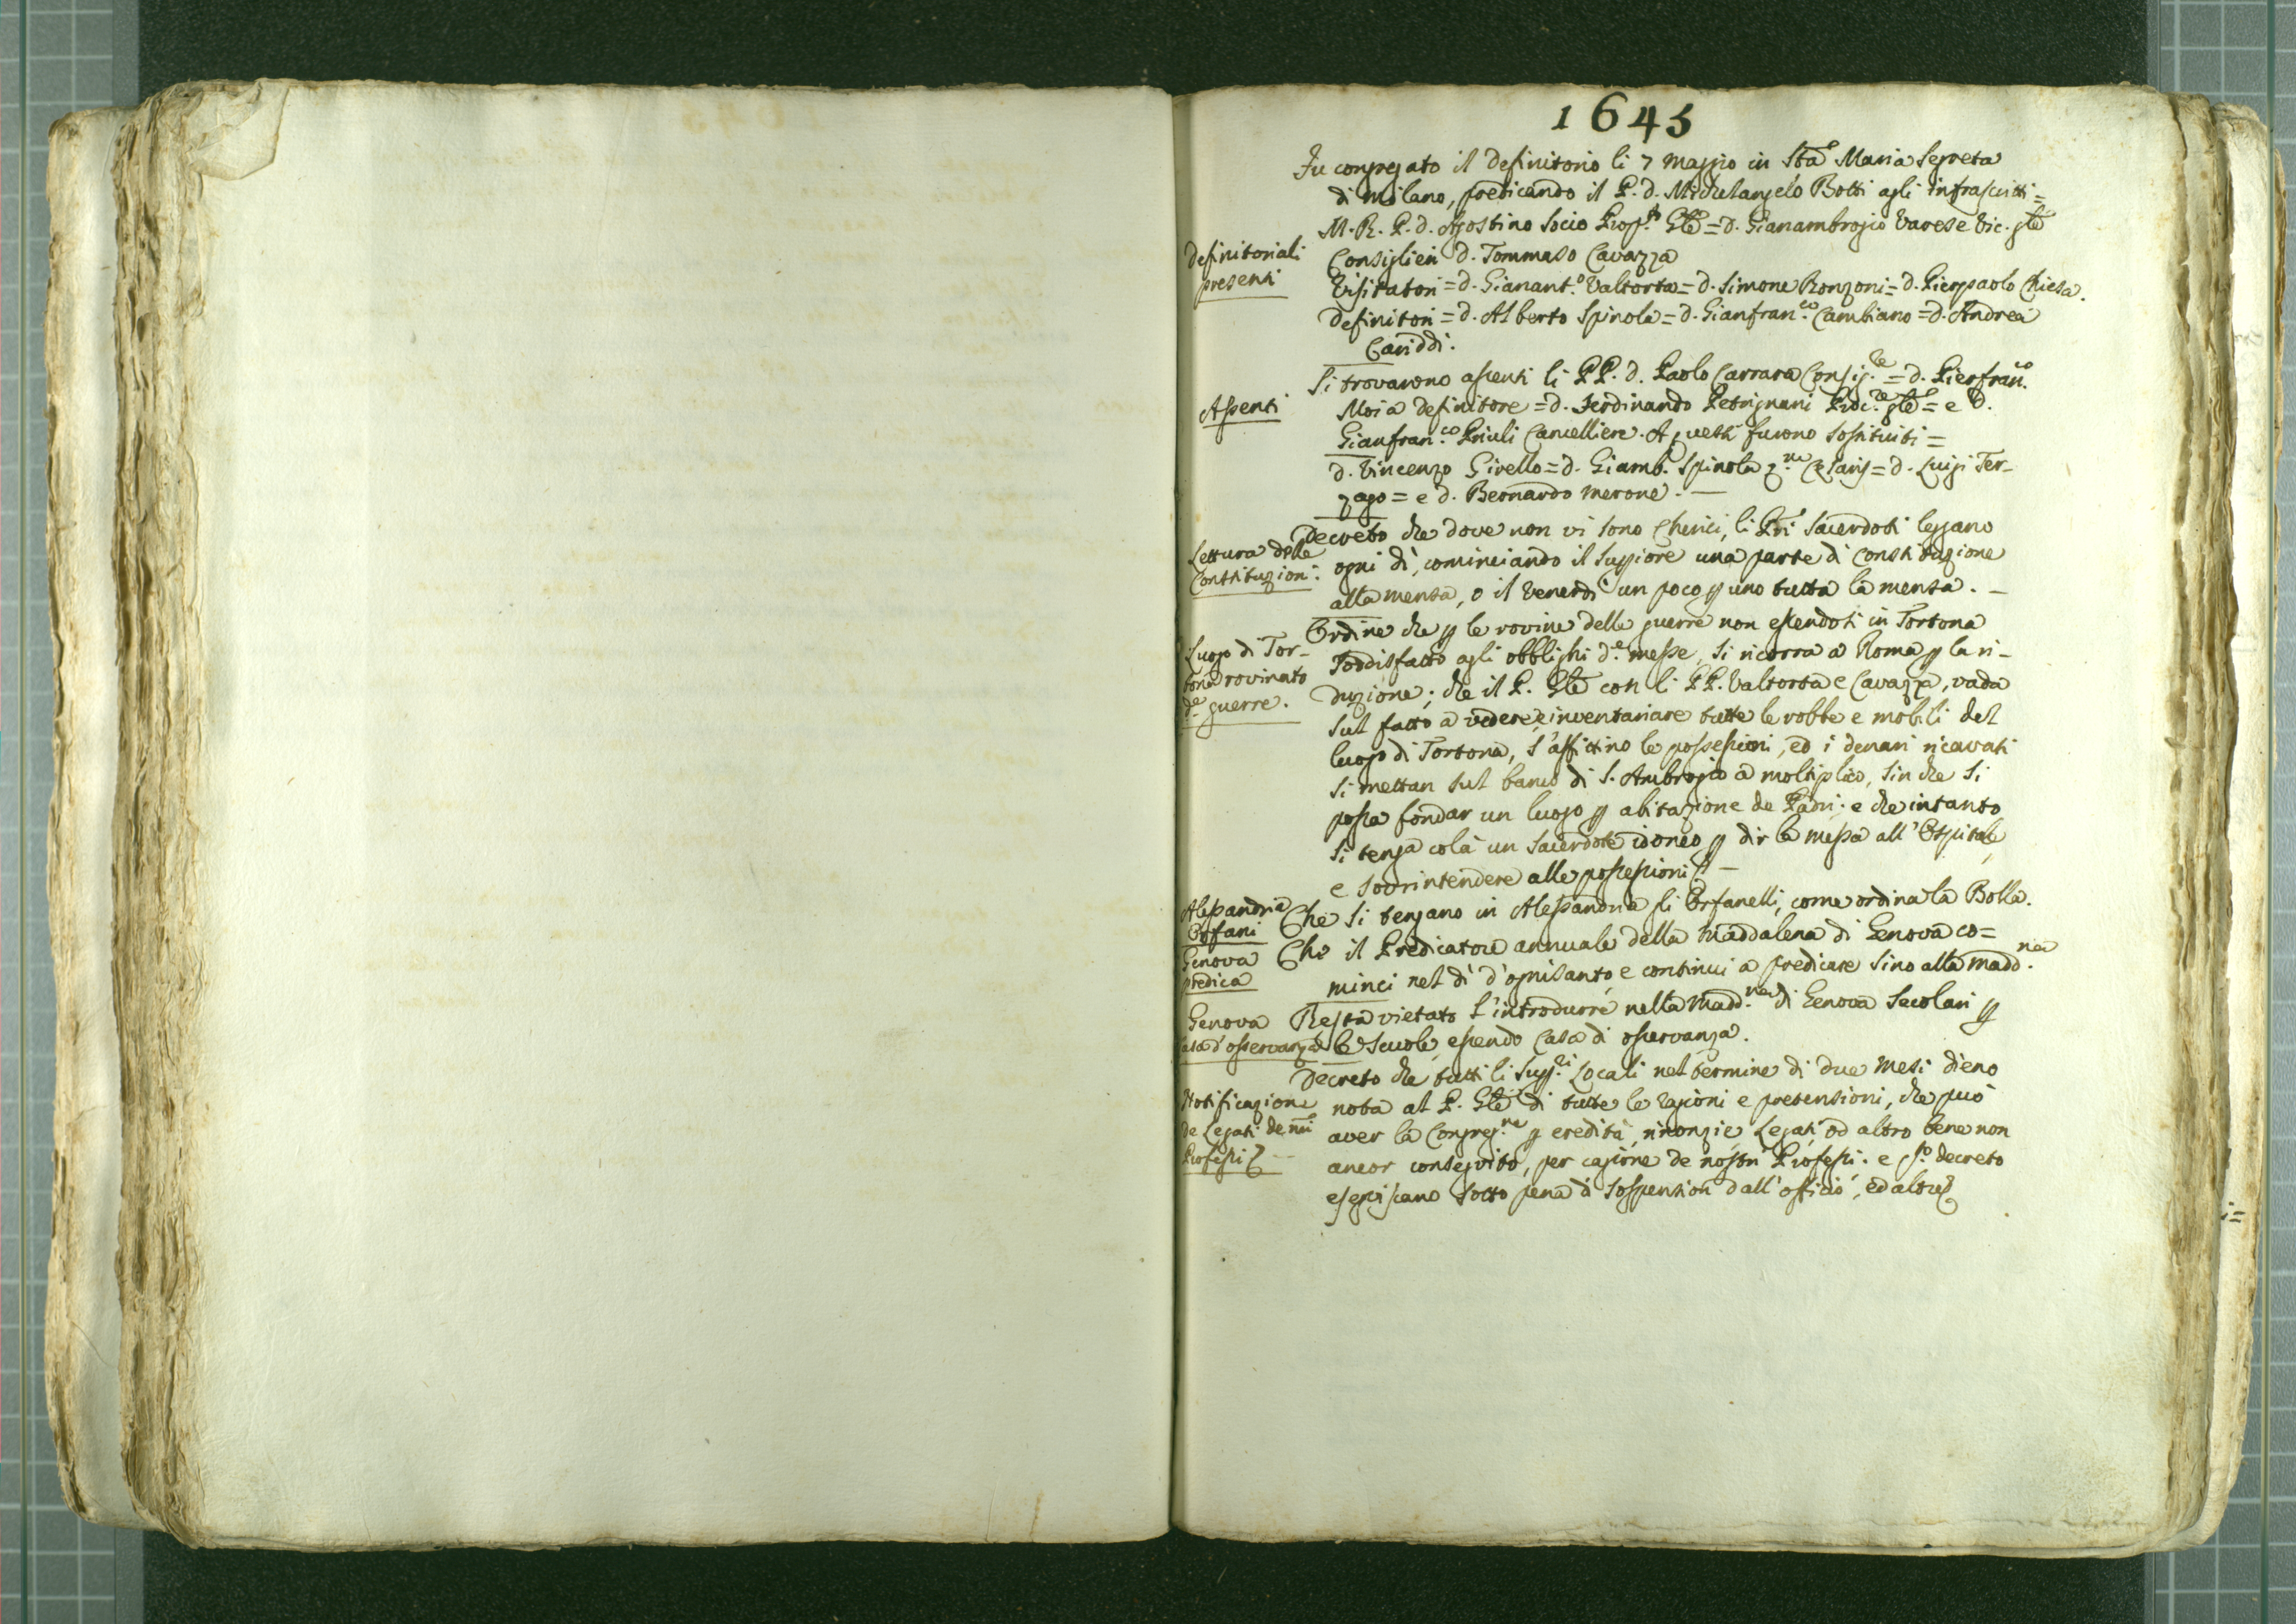 1645
Fu congregato il Definitorio li 7 Maggio in Sta Maria Segreta
di Milano, predicando il P. d. Michelangelo Botti agli infrascritti =
M. R. P. d. Agostino Socio Prop.to Gle = d. Gianambrogio Varese Vic. gle
Definitoriali
presenti
Consiglieri d. Tommaso Cavazza
Visitatori = d. Gianant.o Valtorta = d. Simone Ronzoni = d. Pierpaolo Chiesa.
Definitori = d. Alberto Spinola = d. Gianfran.co Cambiano = d. Andrea
Cariddi.
Assenti
Si trovarono assenti li PP. d. Paolo Carrara Consig.re = d. Pierfran.co
Moia definitore = d. Ferdinando Petrignani Proc.re gle = e d.
Gianfran.co Priuli Cancelliere. A questi furono sostituiti =
d. Vincenzo Givello = d. Giamb. Spinola = d. Luigi Ter-
zago = e d. Bernardo Merone. —
Lettura delle
Constituzioni.
Decreto che dove non vi sono Cherici, li Pri Sacerdoti leggano
ogni dì, cominciando il Suppiore una parte di Constituzione
alla mensa, o il Venerdì un poco p uno tutta la mensa. —
Luogo di Tor-
tona rovinato
de guerre.
Ordine che p le rovine delle guerre non essendosi in Tortona
soddisfatto agli obblighi d.e messe, si ricorra a Roma p la ri-
duzione; che il P. Gle con li PP. Valtorta e Cavazza, vada
sul fatto a vedere, e inventariare tutte le robbe e mobili del
luogo di Tortona, s'affittino le possessioni, ed i denari ricavati
si mettan sul banco di S. Ambrogio a moltiplico, sin che si
possa fondar un luogo p abitazione de Padri. e che intanto
si tenga colà un Sacerdote idoneo p dir la messa all'Ospitale,
e sovrintendere alle possessioni. —
Alessandria
Orfani
Che si tengano in Alessandria gli Orfanelli, come ordina la Bolla.
Genova
predica
Che il Predicatore annuale della Maddalena di Genova co=
minci nel dì d'ognisanto, e continui a predicare sino alla Madd.na
Genova
casa d'osservanza
Resta vietato l'introdurre nella Madd.na di Genova Secolari p
le Scuole, essendo Casa di osservanza.
Notificazione
de Legati de nri
Professi
Decreto che tutti li Supp.ri Locali nel termine di due mesi dieno
nota al P. Gle di tutte le ragioni e pretensioni, che può
aver la Congreg.ne p eredità, rinonzie, Legati, od altro bene non
ancor conseguito, per cagione de nostri Professi. e q.to decreto
eseguiscano sotto pena di sospension dall'officio, ed altre